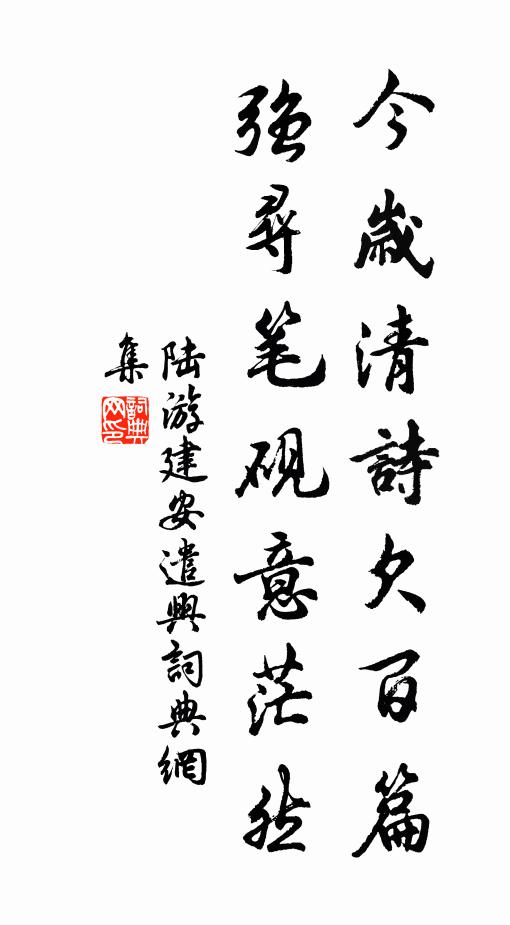 今歲清詩欠百篇
強尋笔硯意茫然
陆游建安遣興詞典網
集
詞典网印